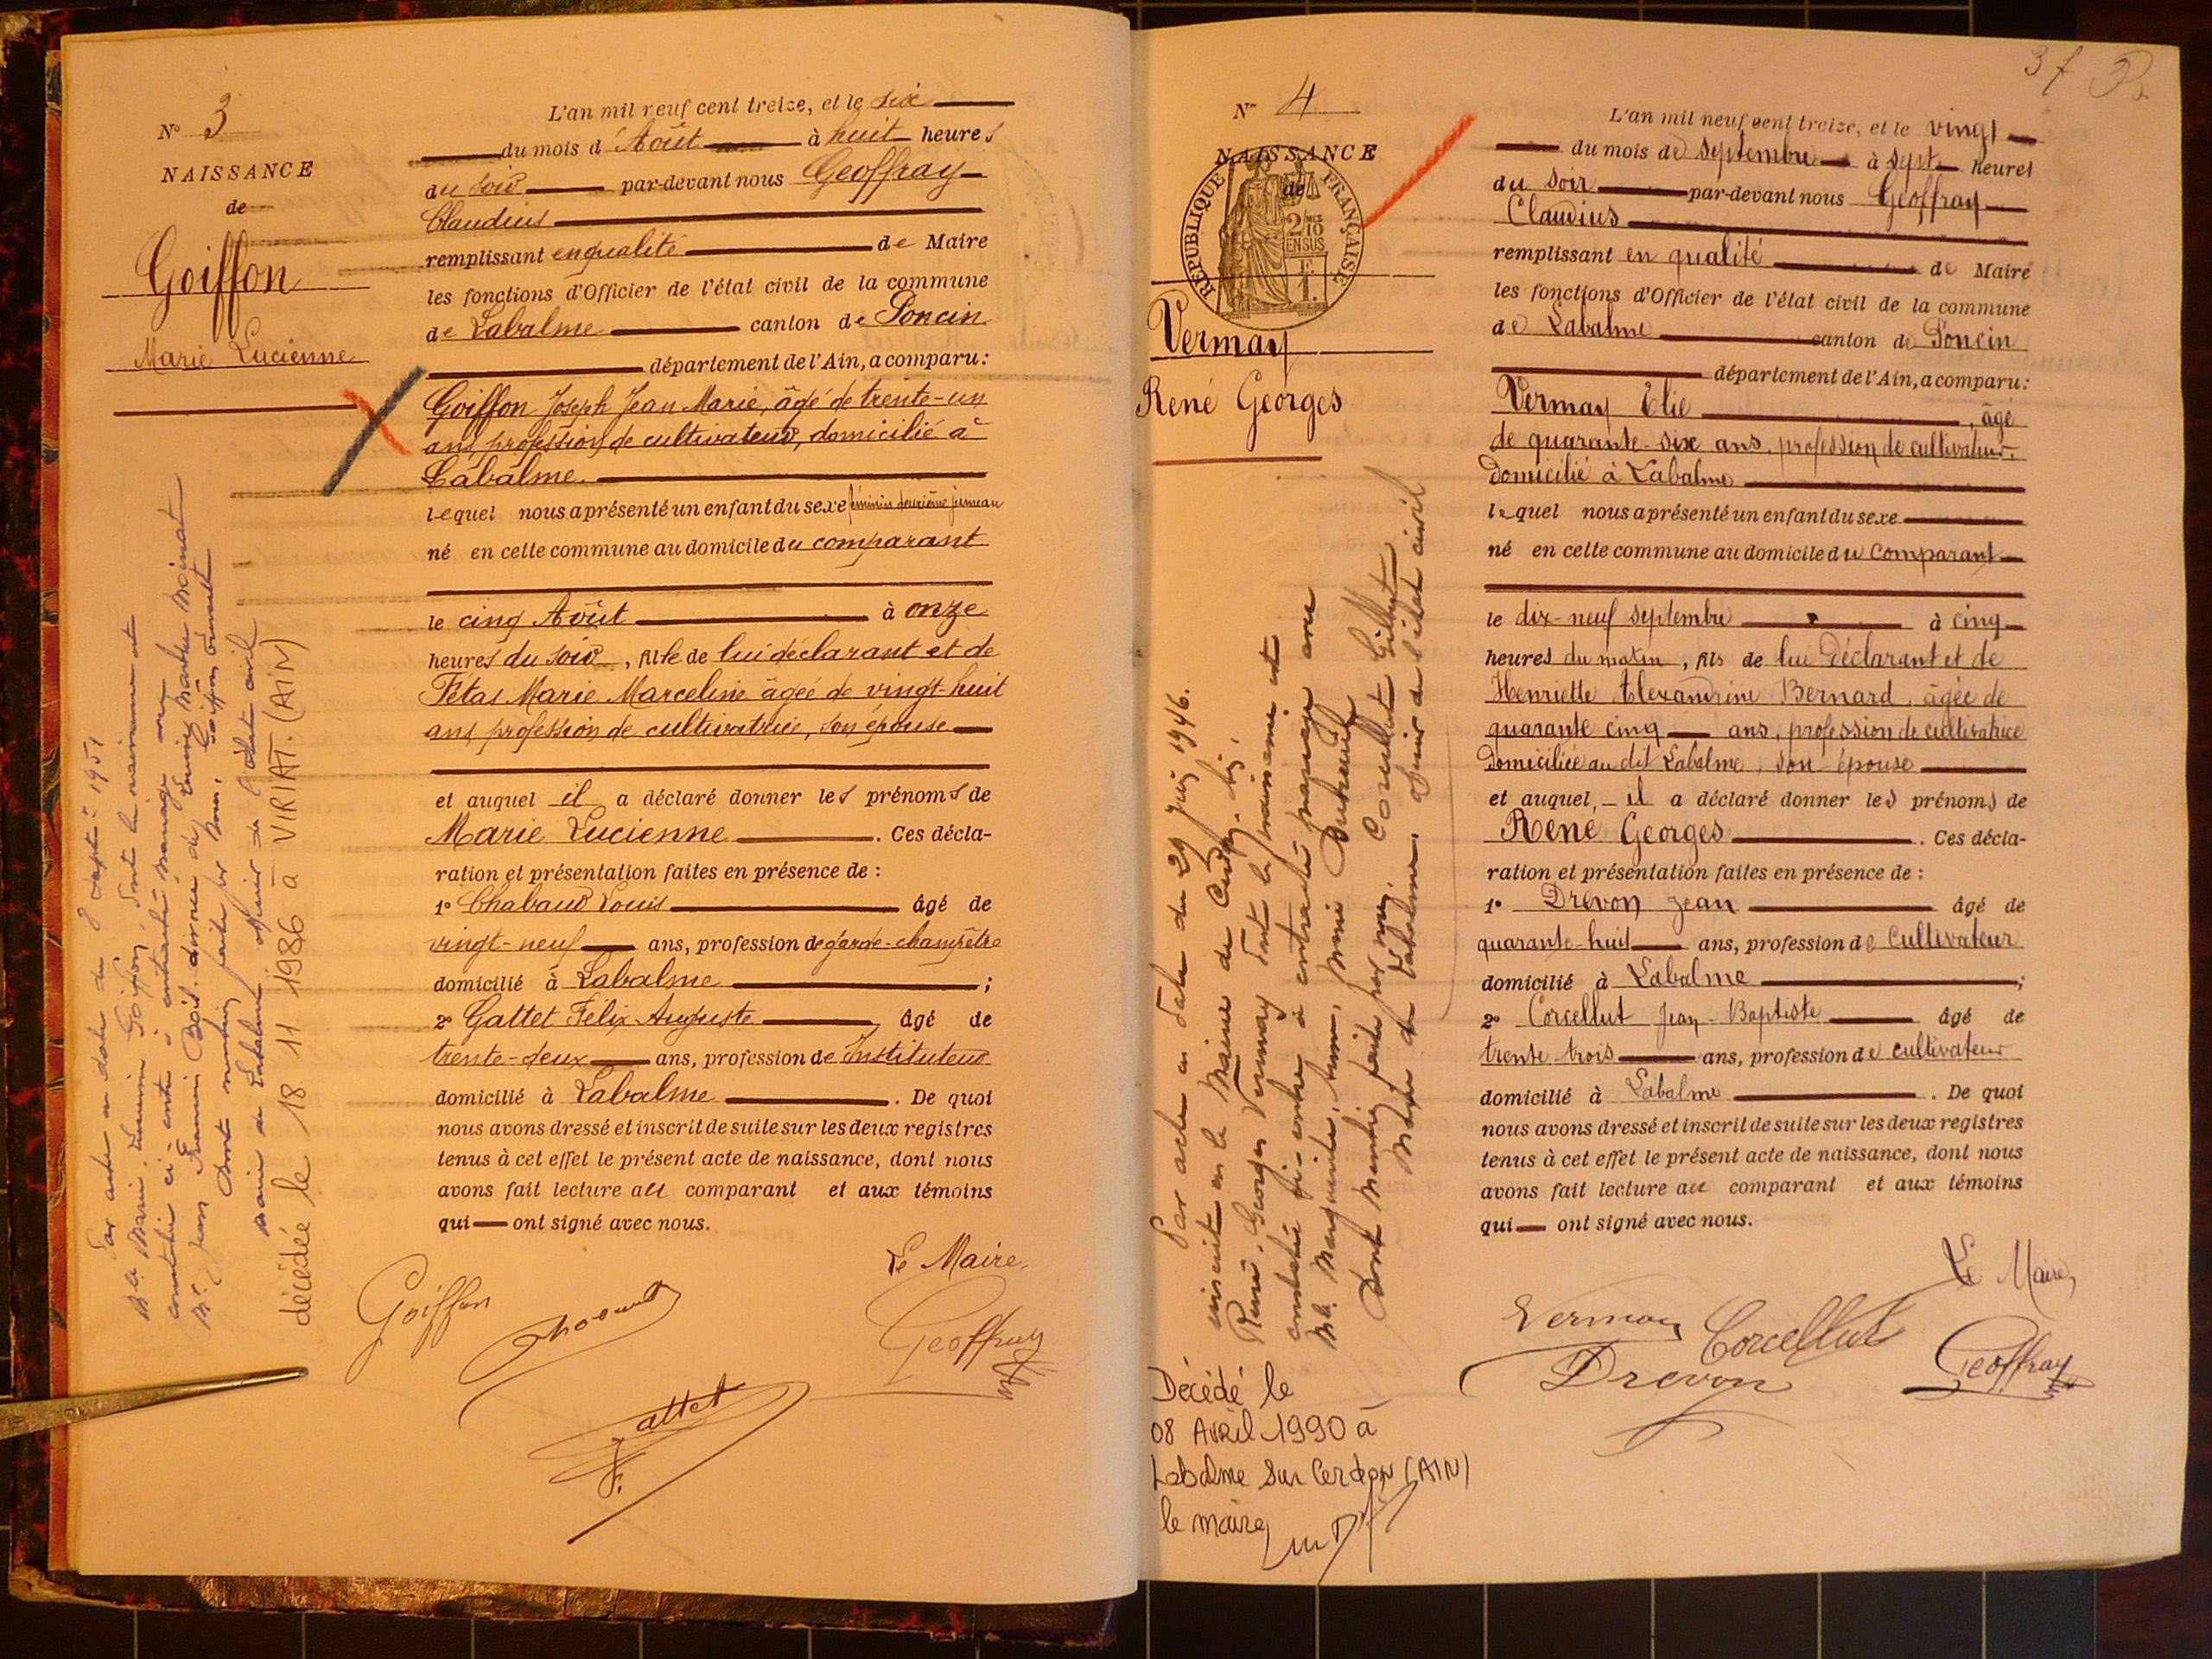 N° 3
NAISSANCE
de
Goiffon
Marie Lucienne
L'an mil neuf cent treize, et le six
du mois d'Août à huit heures
du soir par-devant nous Geoffray
Claudius
remplissant en qualité de Maire
les fonctions d'Officier de l'état civil de la commune
de Labalme canton de Poncin
département de l'Ain, a comparu:
Goiffon Joseph Jean Marie, âgé de trente-un
ans, profession de cultivateur, domicilié à
Labalme.
lequel nous a présenté un enfant du sexe féminin deuxième jumeau
né en cette commune au domicile du comparant
le cinq Août à onze
heures du soir, fille de lui déclarant et de
Fétas Marie Marceline âgée de vingt-huit
ans, profession de cultivatrice, son épouse
et auquel il a déclaré donner les prénoms de
Marie Lucienne. Ces décla-
ration et présentation faites en présence de :
1° Chabaud Louis âgé de
vingt-neuf ans, profession de garde-champêtre
domicilié à Labalme ;
2° Gattet Félix Auguste âgé de
trente-deux ans, profession de Instituteur
domicilié à Labalme. De quoi
nous avons dressé et inscrit de suite sur les deux registres
tenus à cet effet le présent acte de naissance, dont nous
avons fait lecture au comparant et aux témoins
qui ont signé avec nous.
Le Maire,
Goiffon
Geoffray
Par acte en date du 8 sept. 1951
Goiffon, dont la naissance est
constatée ci-contre a contracté mariage avec
Dont mention faite par nous, Goiffon
maire de Labalme officier de l'état civil
décédée le 18 11 1986 à VIRIAT. (AIN)
37
N° 4
NAISSANCE
de
REPUBLIQUE FRANÇAISE
2/10
EN SUS
Vermay
René Georges
L'an mil neuf cent treize, et le vingt
du mois de septembre à sept heures
du soir par-devant nous Geoffray
Claudius
remplissant en qualité de Maire
les fonctions d'Officier de l'état civil de la commune
de Labalme canton de Poncin
département de l'Ain, a comparu:
Vermay Elie, âgé
de quarante-six ans, profession de cultivateur,
Domicilié à Labalme
lequel nous a présenté un enfant du sexe
né en cette commune au domicile du comparant
le dix-neuf septembre à cinq
heures du matin, fils de lui Déclarant et de
Henriette Alexandrine Bernard, âgée de
quarante cinq ans, profession de cultivatrice
Domiciliée au dit Labalme, son épouse
et auquel, il a déclaré donner les prénoms de
René Georges. Ces décla-
ration et présentation faites en présence de :
1° Drevon Jean âgé de
quarante-huit ans, profession de cultivateur
domicilié à Labalme ;
2° Corcellut Jean-Baptiste âgé de
trente trois ans, profession de cultivateur
domicilié à Labalme. De quoi
nous avons dressé et inscrit de suite sur les deux registres
tenus à cet effet le présent acte de naissance, dont nous
avons fait lecture au comparant et aux témoins
qui ont signé avec nous.
Le Maire,
Vermay Corcellut
Drevon Geoffray
Par acte en date du 29 Juin 1946.
inscrit en la Mairie de Cerdon
René, Georges Vermay dont la naissance est
constatée ci-contre a contracté mariage avec
Dont mention faite par nous, Corcellut Gilbert
Maire de Labalme, officier de l'état civil
Décédé le
08 Avril 1990 à
Labalme Sur Cerdon (AIN)
le maire